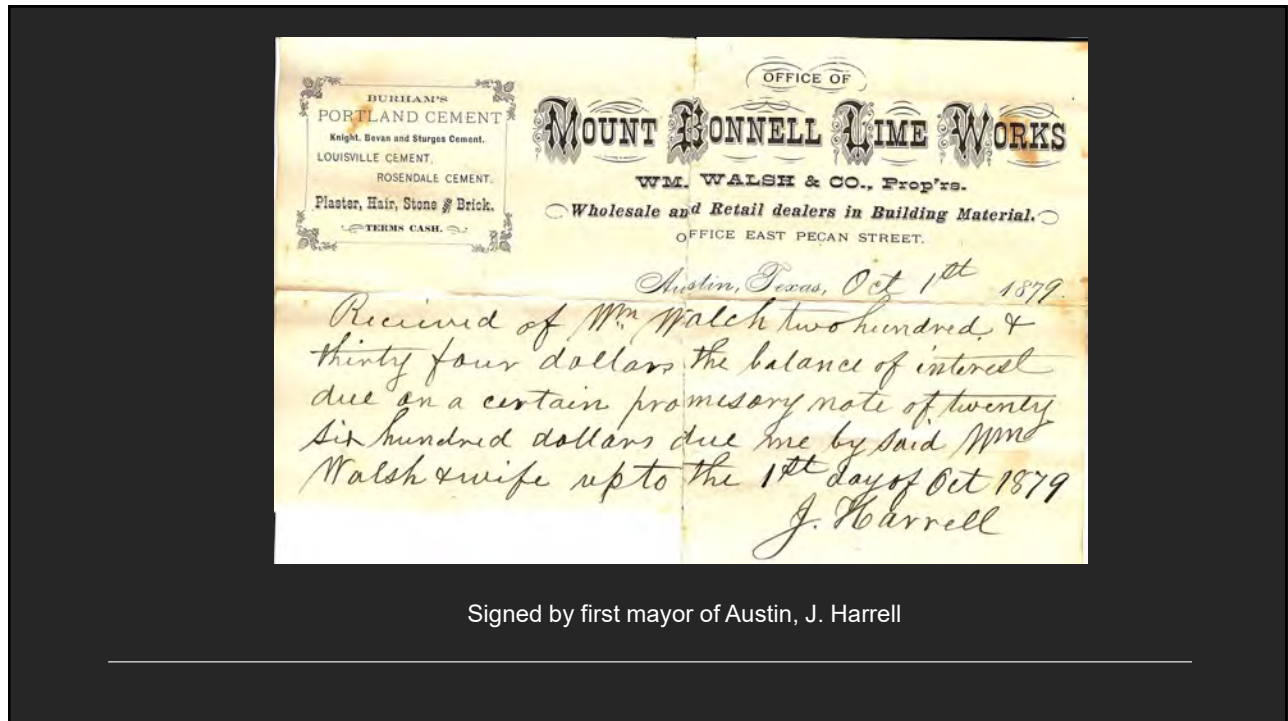 BURHAM'S
PORTLAND CEMENT
Knight. Bevan and Sturges Cement.
LOUISVILLE CEMENT,
ROSENDALE CEMENT.
Plaster, Hair, Stone and Brick.
TERMS CASH.
OFFICE OF
MOUNT BONNELL LIME WORKS
WM. WALSH & CO., Prop'rs.
Wholesale and Retail dealers in Building Material.
OFFICE EAST PECAN STREET.
Austin, Texas, Oct 1st 1879.
Received of Wm Walch two hundred &
thirty four dollars the balance of interest
due on a certain promesory note of twenty
six hundred dollars due me by said Wm
Walsh & wife up to the 1st day of Oct 1879
J. Harrell
Signed by first mayor of Austin, J. Harrell